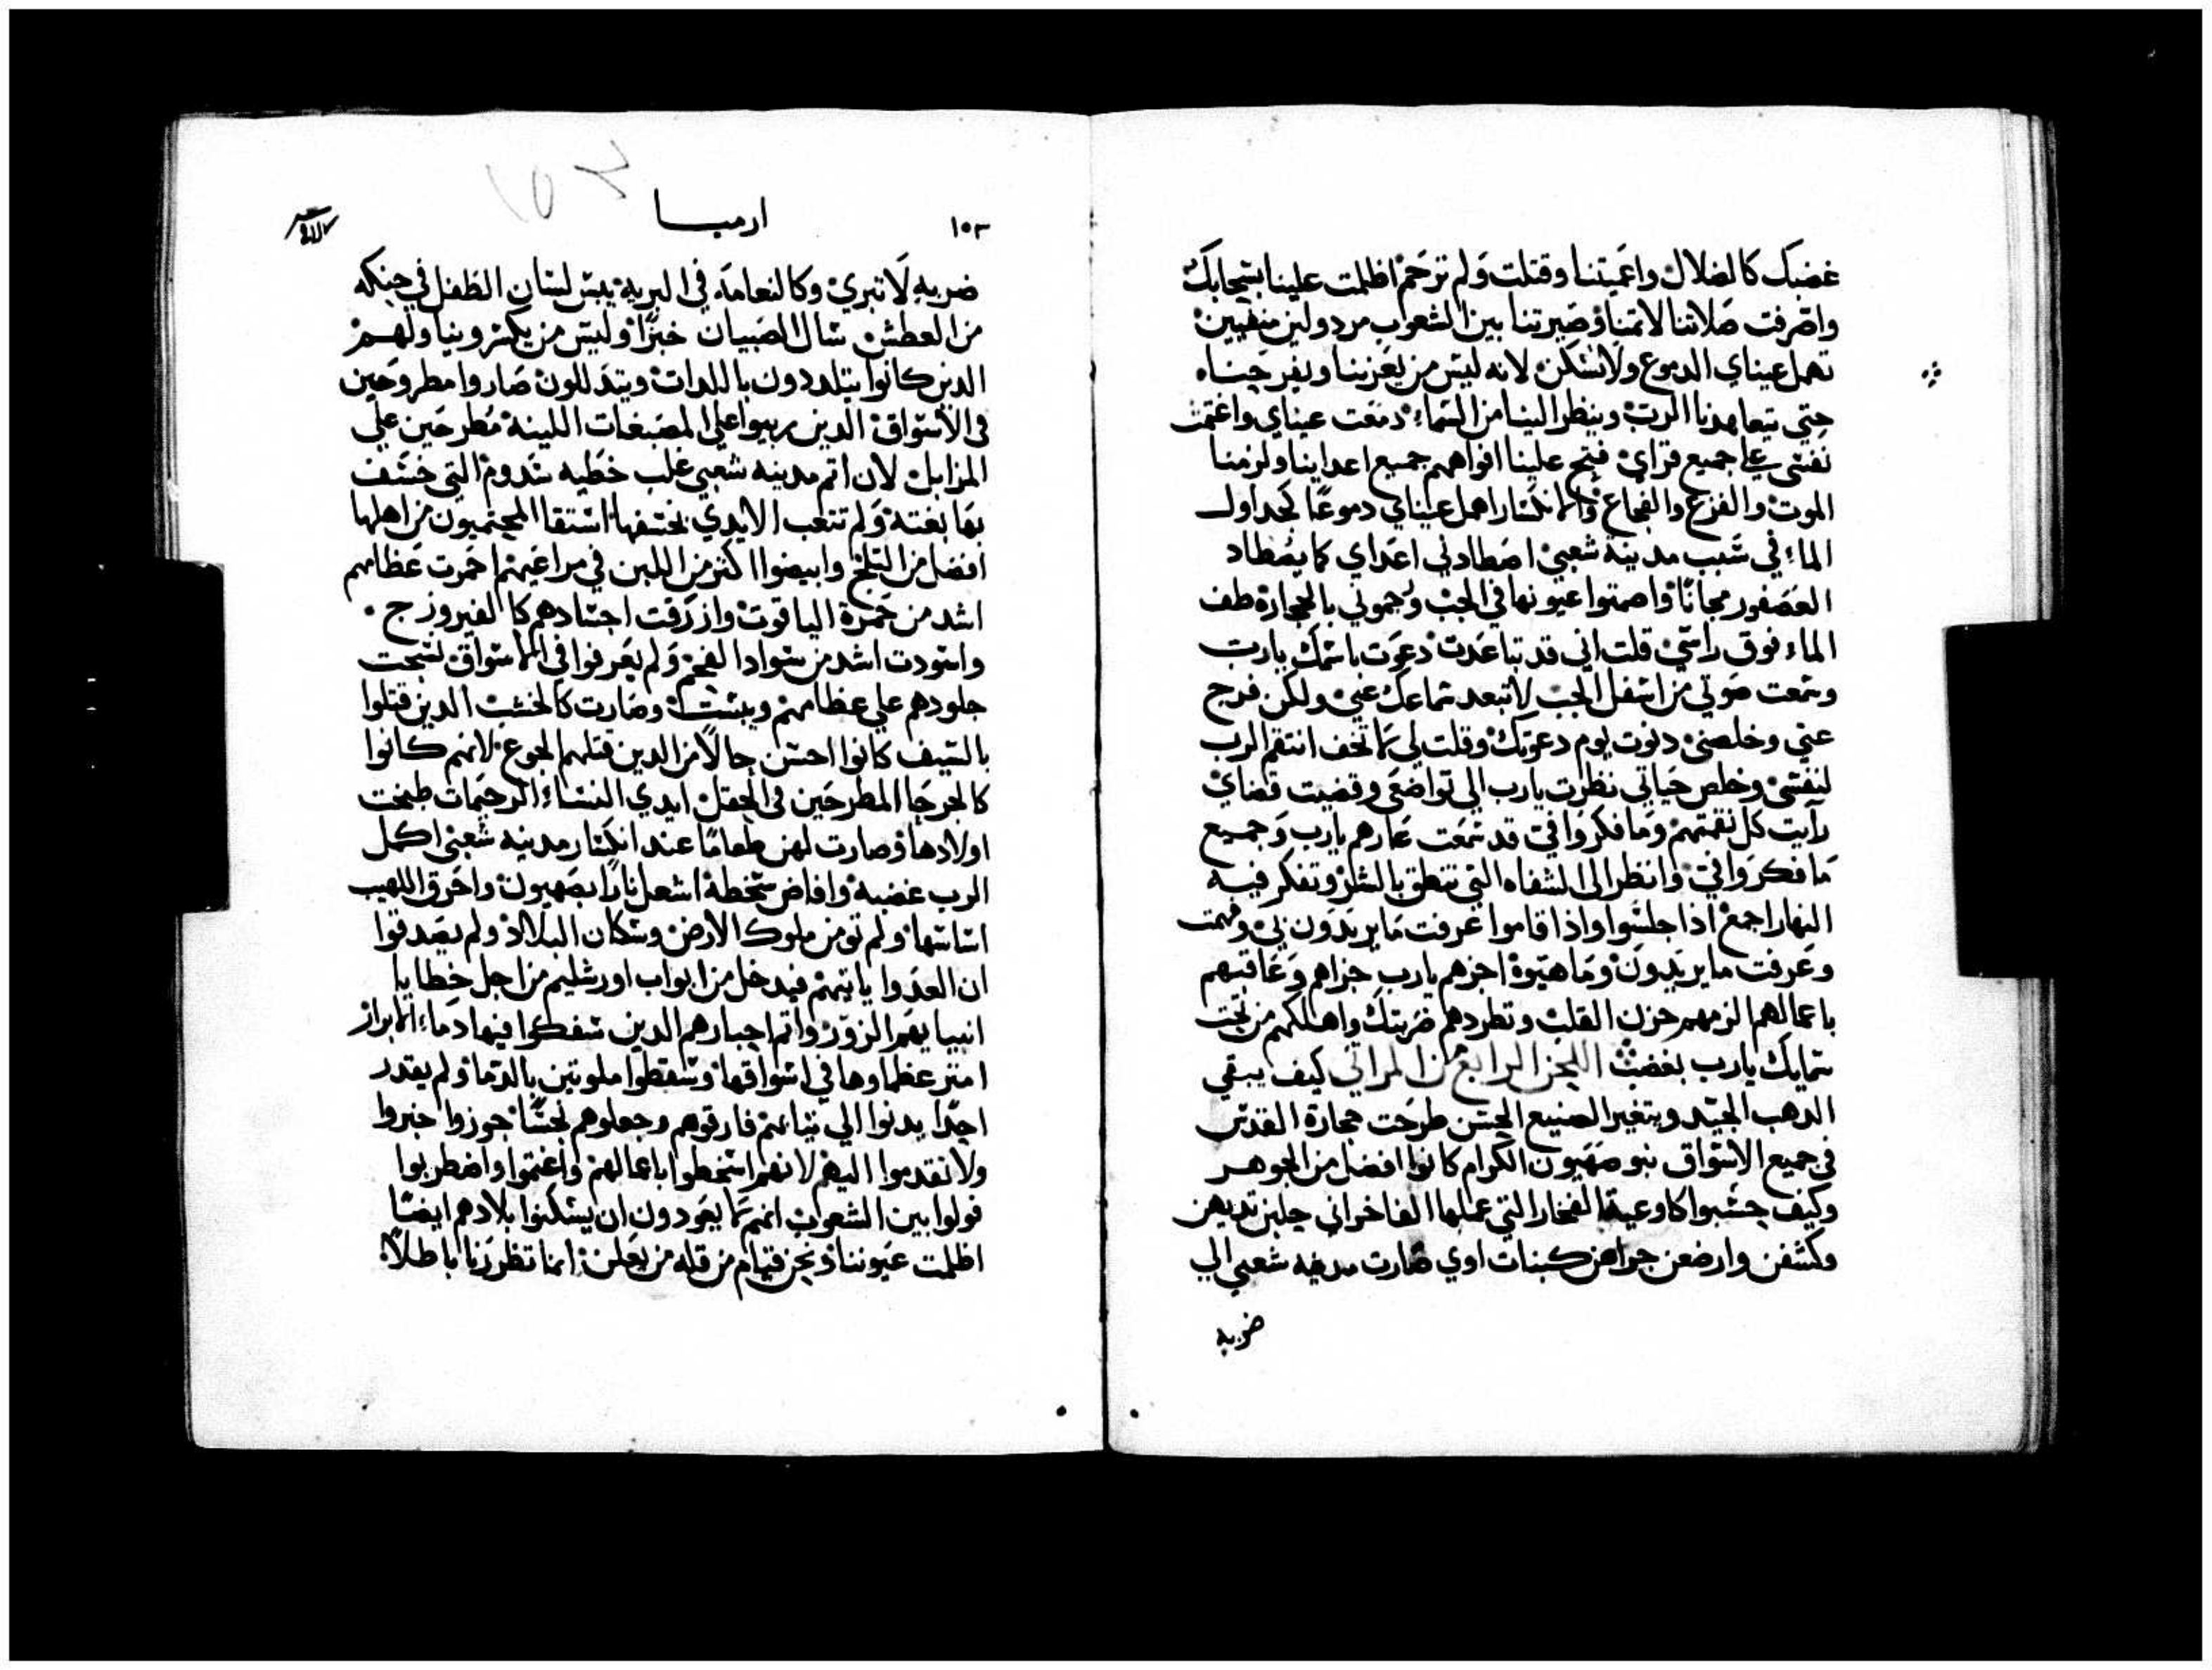 غضبك كالضلال واعميتنا وقتلت ولم ترحم اظلمت علينا بسحابك
واصرفت صلاتنا لامتنا وصيرتنا بين الشعوب مردولين منفيين
تهمل عيناي الدموع ولا تسكن لانه ليس من يعزينا ويفرحنا
حتى يتعاهدنا الرب وينظر الينا من السماء دمعت عيناي واغتمت
نفسي على جميع قراي فتح علينا افواههم جميع اعداينا ولزمنا
الموت والفزع والفجاع والانكسار اهمل عيناي دموعًا كجداول
الماء في سبب مدينة شعبي اصطادني اعداي كما يصطاد
العصفور مجانًا واصمتوا عيونها في الجب ورجموني بالحجارة طف
الماء فوق راسي قلت اني قد تباعدت دعوت باسمك يارب
وسمعت صوتي من اسفل الجب لا تبعد سماعك عني ولكن فرج
عني وخلصني دنوت يوم دعوتك وقلت لي لا تخف انتقم الرب
لنفسي وخلص حياتي نظرت يارب الى تواضعي وقضيت قضاي
رايت كل نقمتهم وما فكروا في قد سمعت عارهم يارب وجميع
ما فكروا في وانظر الى الشفاه التي تنطق بالشر وتفكر فيه
النهار اجمع اذا جلسوا واذا قاموا عرفت ما يريدون بي وفهمت
وعرفت ما يريدون وما هيوه اجزهم يارب جزاهم وعاقبهم
باعمالهم الزمهم حزن القلب وتطردهم ضربتك واهلكهم من تحت
سمايك يارب بغضب اللحن الرابع من المراتي كيف يبقي
الدهب الجيد ويتغير الصنيع الحسن طرحت حجارة القدس
في جميع الاسواق بنو صهيون الكرام كانوا افضل من الجوهر
وكيف حسبوا كاوعية الفخار التي عملها الفاخراني حلبن تديهن
وكشفن وارضعن جراهن كبنات اوي صارت مدينه شعبي الي
ضربه
١٥٣
ارميا
١٥٣
ضربه لا تبري وكالنعامه في البرية يبس لسان الطفل في حنكه
من العطش سال الصبيان خبزًا وليس من يكسر ويناولهم
الدين كانوا يتلددون باللدات ويتدللون صاروا مطروحين
في الاسواق الدين ربيوا على المصبغات اللينة مطرحين علي
المزابل لان اتم مدينه شعبي غلب خطيه سدوم التي خسف
بها بغتة ولم تتعب الايدي بخسفها استقا المحتميون من اهلها
افضل من التلج وابيضوا اكثر من اللبن في مراعيهم احمرت عظامهم
اشد من حمرة الياقوت وازرقت اجسادهم كالفيروزج
واسودت اشد من سواد الفحم ولم يعرفوا في الاسواق لسحت
جلودهم علي عظامهم ويبست وصارت كالخشب الدين قتلوا
بالسيف كانوا احسن حالًا من الدين قتلهم الجوع لانهم كانوا
كالجرحا المطرحين في الحقل ايدي النساء الرحيمات طبخت
اولادها وصارت لهن طعامًا عند انكسار مدينه شعبي اكمل
الرب غضبه وافاض سخطه اشعل نارًا بصهيون واحرق اللهيب
اساسها ولم تومن ملوك الارض وسكان البلاد ولم يصدقوا
ان العدوا ياتيهم فيدخل من ابواب اورشليم من اجل خطايا
انبيايهم الزور واتم احبارهم الدين سفكوا فيها دماء الابرار
امتز عظماوها في اسواقها وسقطوا ملوتين بالدما ولم يقدر
احدًا يدنوا الي تيابهم فارقوهم وجعلوهم نجسًا جوزوا خبروا
ولا تقدموا اليهم لانهم اسخطوا باعمالهم واغتموا واضطربوا
قولوا بين الشعوب انهم لا يعودون ان يسكنوا بلادهم ايضًا
اظلمت عيوننا ونحن قيام من قله من يعلن انما تظرنا باطلًا